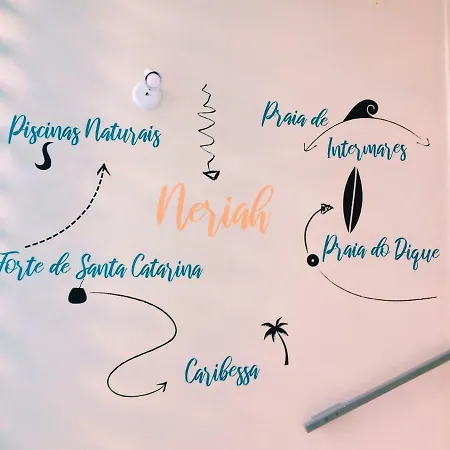 Piscinas Naturais
Praia de
Intermares
Neriah
Praia do Dique
Forte de Santa Catarina
Caribessa